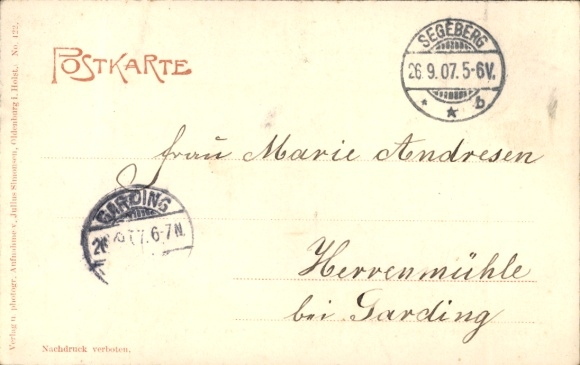 POSTKARTE
SEGEBERG
26.9.07.5-6V.
* * b
Frau Marie Andresen
GARDING
7.6-7N.
Herrenmühle
bei Garding
Nachdruck verboten.
Verlag u. photogr. Aufnahme v. Julius Simonsen, Oldenburg i. Holst. No. 422.